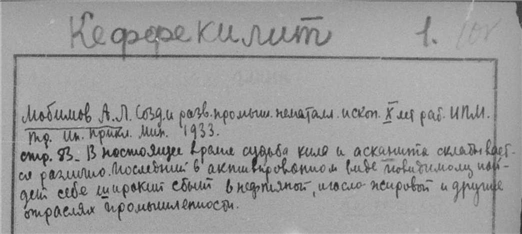 Кеффекилит 1.
Любимов А.Л. Созд. и разв. промыш. неметалл. ископ. X лет раб. ИПМ.
Тр. Ин. Прикл. Мин. 1933.
стр. 53. В настоящее время судьба кила и асканита складывает-
ся различно. Последний в активированном виде повидимому най-
дет себе широкий сбыт в нефтяной, масло-жировой и других
отраслях промышленности.